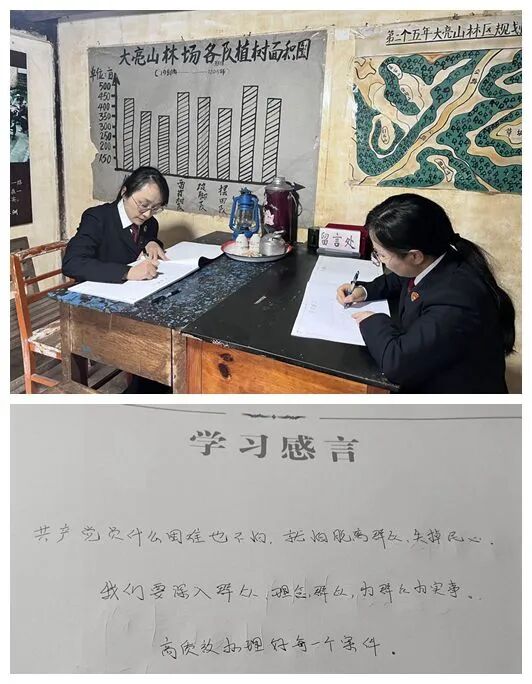 大亮山林场各队植树面积图
单位:亩
500
450
400
350
300
250
200
150
第二个五年大亮山林区规划
留言处
学习感言
共产党员什么困难也不怕,就怕脱离群众,失掉民心。
我们要深入群众,理念群众,为群众办实事。
高质效办理好每一个案件。